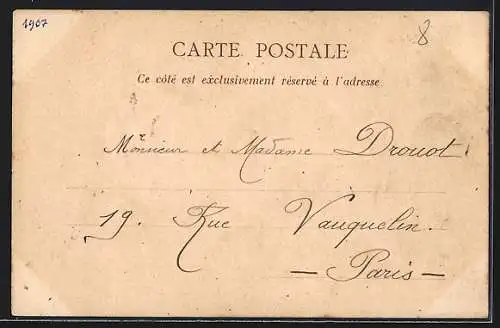 1907
8
CARTE POSTALE
Ce côté est exclusivement réservé à l'adresse.
Monsieur et Madame Drouot
19. Rue Vauquelin.
— Paris —